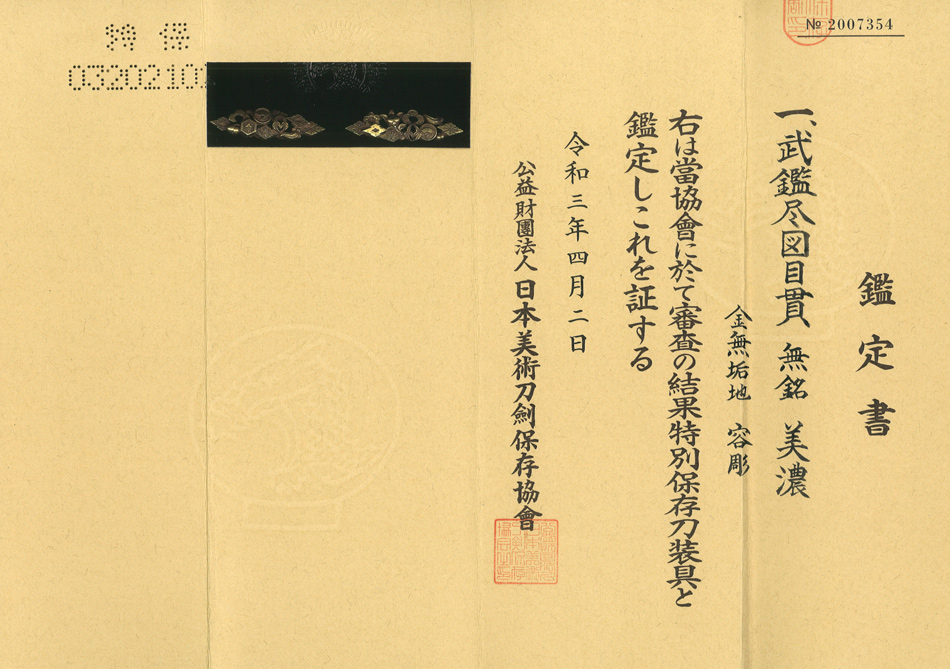 № 2007354
鑑定書
一、武鑑尽図目貫 無銘 美濃
金無垢地 容彫
右は當協會に於て審査の結果特別保存刀装具と
鑑定しこれを証する
令和三年四月二日
公益財團法人 日本美術刀劍保存協會
特保
0320210